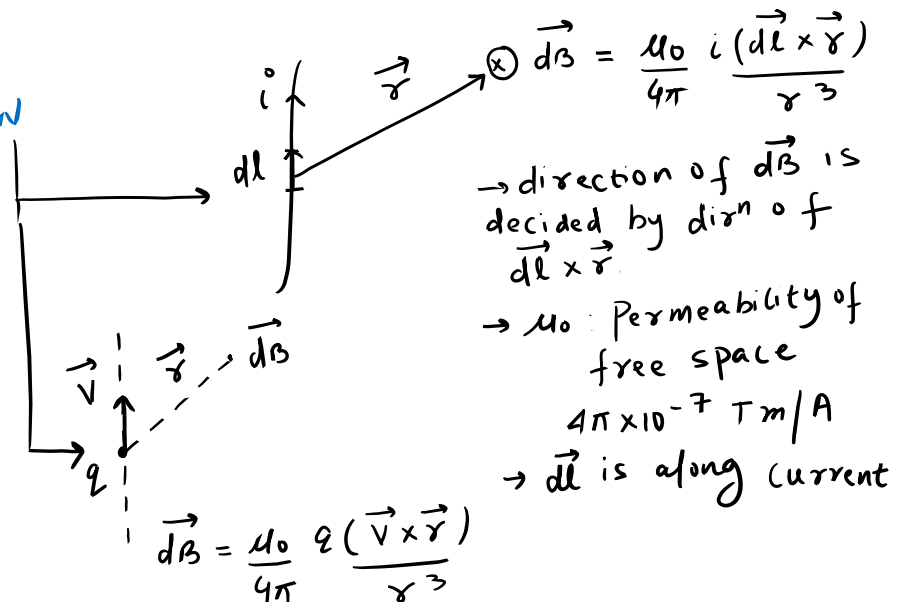 i
r⃗
⊗ d⃗B = μ₀/4π i (d⃗l × r⃗)/r³
dl
→ direction of d⃗B is
decided by dirⁿ of
d⃗l × r⃗
→ μ₀ : Permeability of
free space
4π×10⁻⁷ Tm/A
→ d⃗l is along current
V⃗
r⃗
d⃗B
q
d⃗B = μ₀/4π q(V⃗ × r⃗)/r³